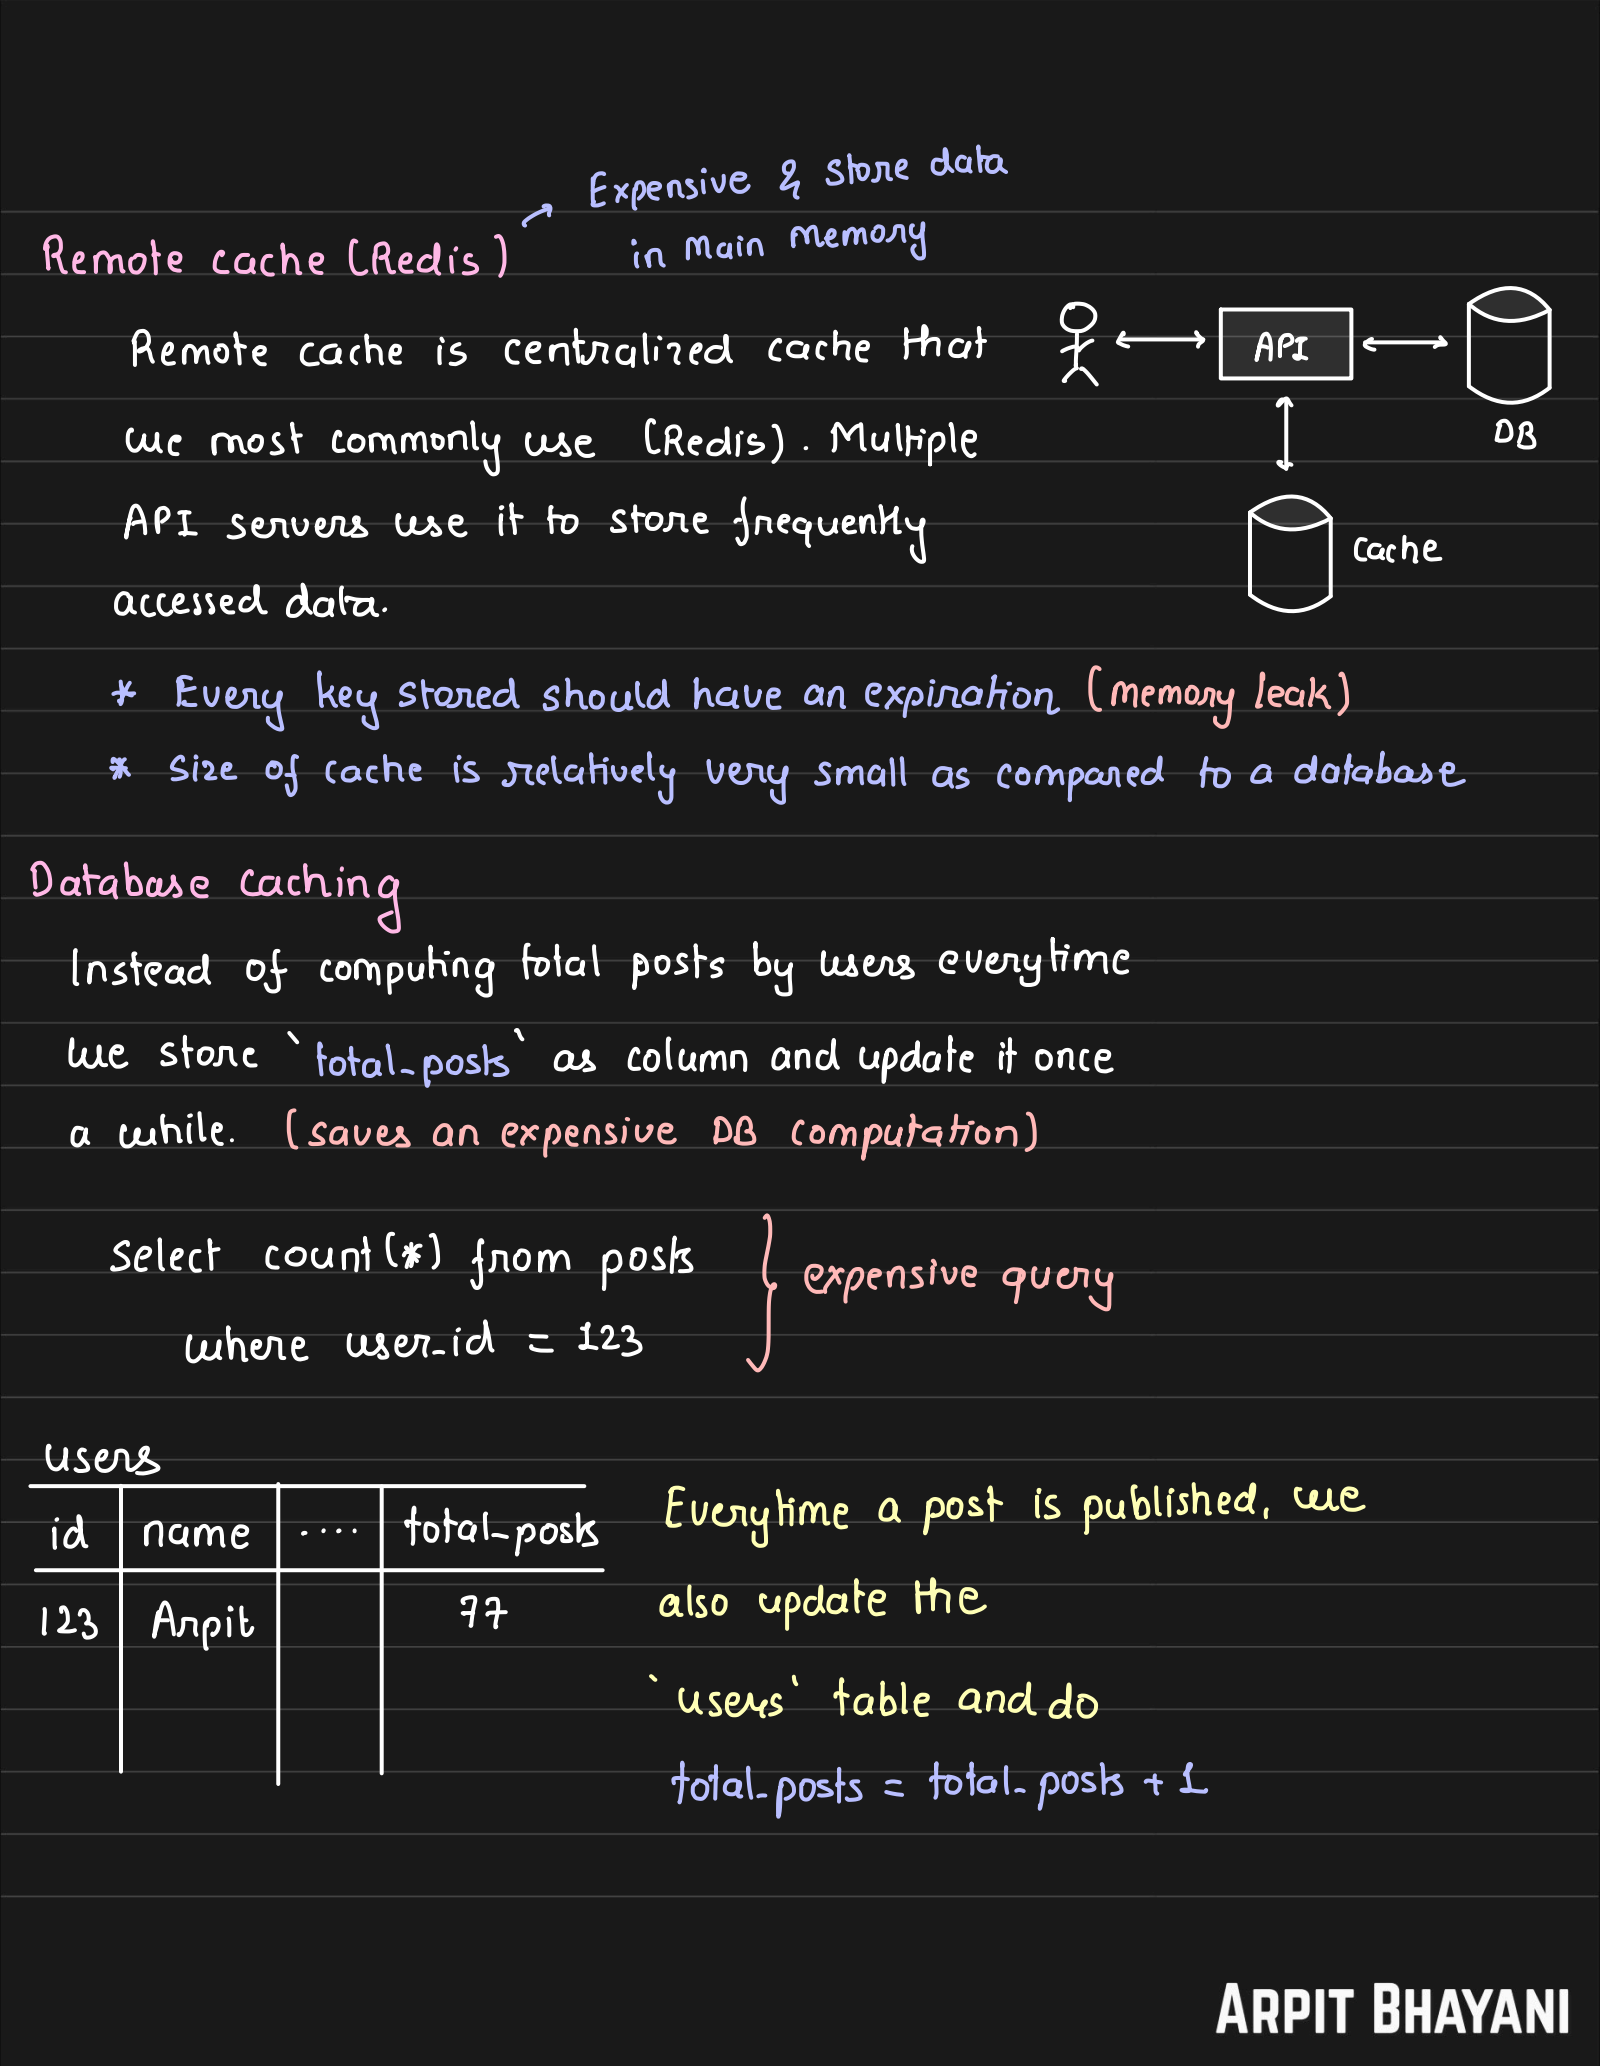 Expensive & store data
in main memory
Remote cache (Redis)
Remote cache is centralized cache that
we most commonly use (Redis). Multiple
API servers use it to store frequently
accessed data.
API
DB
cache
* Every key stored should have an expiration (memory leak)
* Size of cache is relatively very small as compared to a database
Database caching
Instead of computing total posts by users everytime
we store `total_posts` as column and update it once
a while. (saves an expensive DB computation)
select count(*) from posts
where user_id = 123
expensive query
users
id name .... total_posts
123 Arpit 77
Everytime a post is published, we
also update the
`users` table and do
total_posts = total_posts + 1
ARPIT BHAYANI